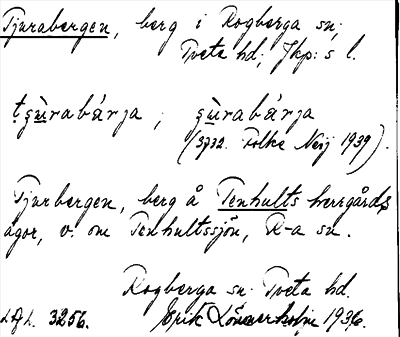 Tjurabergen, berg i Rogberga sn;
Tveta hd; Jkp:s l.
tʂùrabárja ; ʂùrabárja
(3732. Folke Neij 1939).
Tjurbergen, berg å Tenhults herrgårds
ägor, v. om Tenhultssjön, R-a sn.
Rogberga sn Tveta hd.
3256. Erik Lönnerholm 1936.